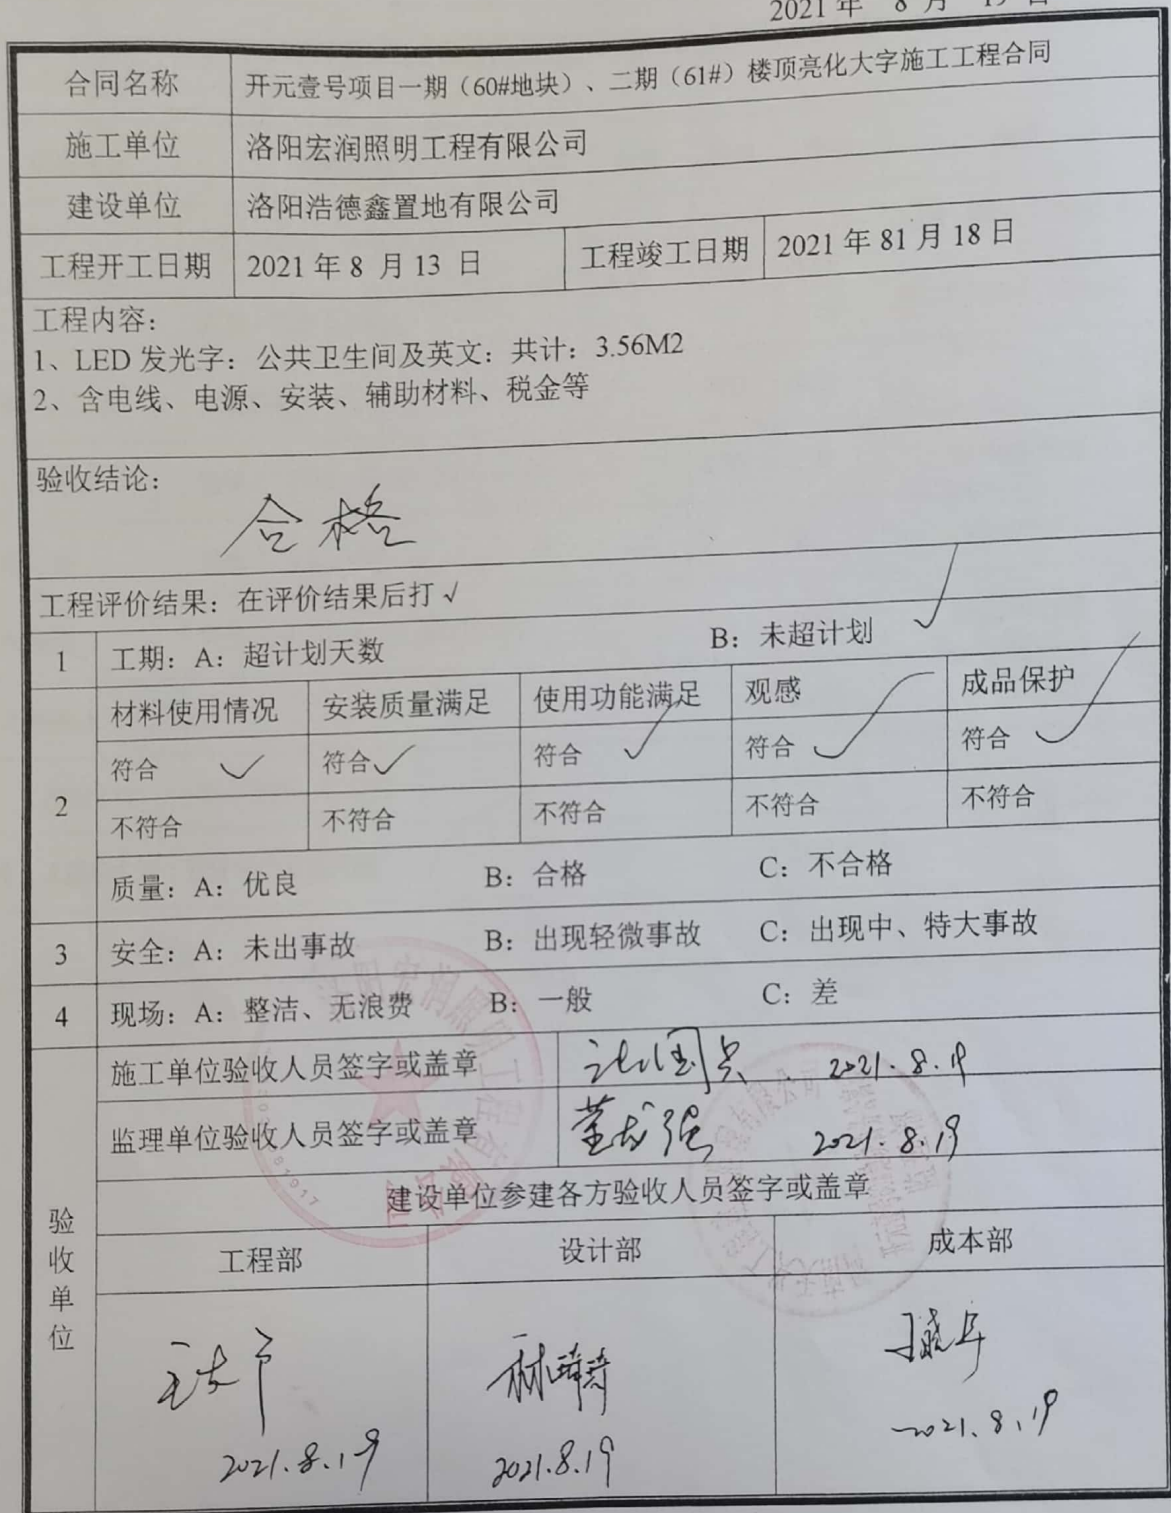 2021 年 8 月 19 日
合同名称 开元壹号项目一期（60#地块）、二期（61#）楼顶亮化大字施工工程合同
施工单位 洛阳宏润照明工程有限公司
建设单位 洛阳浩德鑫置地有限公司
工程开工日期 2021 年 8 月 13 日 工程竣工日期 2021 年 81 月 18 日
工程内容：
1、LED 发光字：公共卫生间及英文：共计：3.56M2
2、含电线、电源、安装、辅助材料、税金等
验收结论：
合格
工程评价结果：在评价结果后打√
1 工期：A：超计划天数 B：未超计划 ✓
材料使用情况 安装质量满足 使用功能满足 观感 成品保护
符合 ✓ 符合 ✓ 符合 ✓ 符合 ✓ 符合 ✓
2
不符合 不符合 不符合 不符合 不符合
质量：A：优良 B：合格 C：不合格
3 安全：A：未出事故 B：出现轻微事故 C：出现中、特大事故
4 现场：A：整洁、无浪费 B：一般 C：差
验收单位
施工单位验收人员签字或盖章 2021.8.19
监理单位验收人员签字或盖章 2021.8.19
建设单位参建各方验收人员签字或盖章
工程部 设计部 成本部
2021.8.19 2021.8.19 2021.8.19